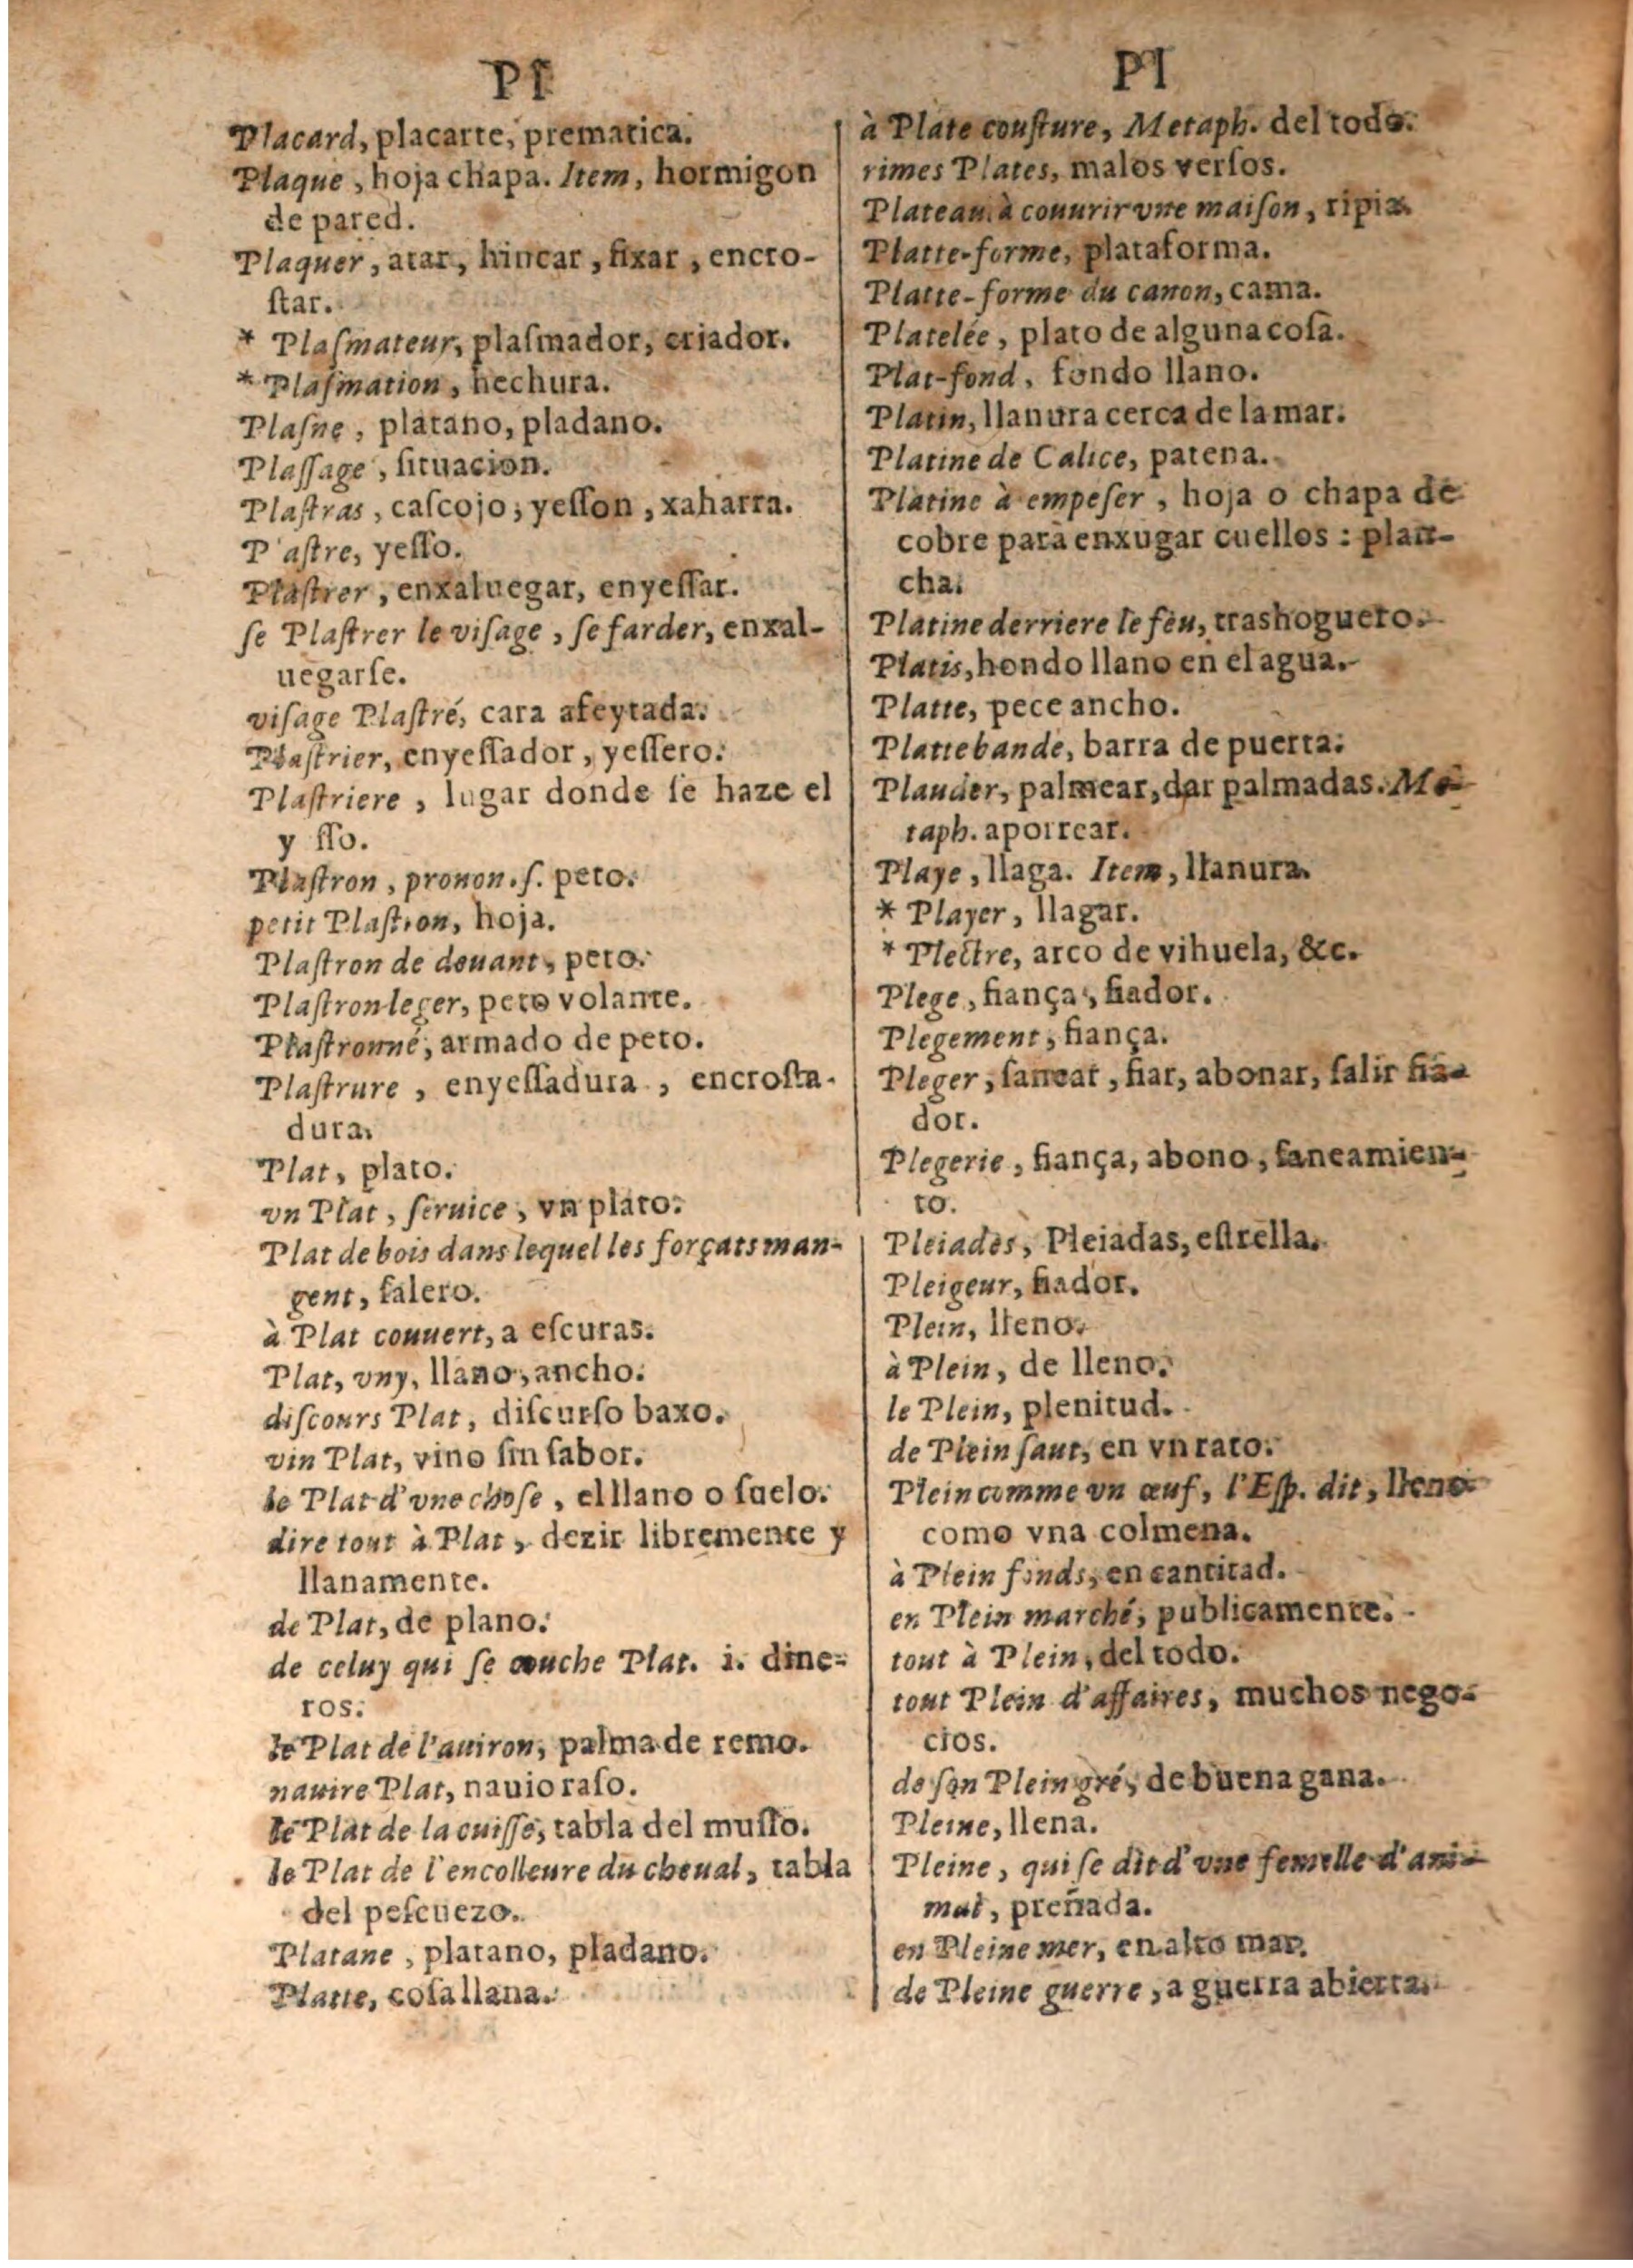 Pl
Placard, placarte, prematica.
Plaque, hoja chapa. Item, hormigon
de pared.
Plaquer, atar, hincar, fixar, encro-
ſtar.
* Plaſmateur, plaſmador, criador.
* Plaſmation, hechura.
Plaſne, platano, pladano.
Plaſſage, ſituacion.
Plaſtras, caſcojo, yeſſon, xaharra.
P aſtre, yeſſo.
Plaſtrer, enxaluegar, enyeſſar.
ſe Plaſtrer le viſage, ſe farder, enxal-
uegarſe.
viſage Plaſtré, cara afeytada.
Plaſtrier, enyeſſador, yeſſero.
Plaſtriere, lugar donde ſe haze el
y ſſo.
Plaſtron, pronon. ſ. peto.
petit Plaſtron, hoja.
Plaſtron de deuant, peto.
Plaſtron leger, peto volante.
Plaſtronné, armado de peto.
Plaſtrure, enyeſſadura, encroſta-
dura.
Plat, plato.
vn Plat, ſeruice, vn plato.
Plat de bois dans lequel les forçats man-
gent, ſalero.
à Plat couuert, a eſcuras.
Plat, vny, llano, ancho.
diſcours Plat, diſcurſo baxo.
vin Plat, vino ſin ſabor.
le Plat d'vne choſe, el llano o ſuelo.
dire tout à Plat, dezir libremente y
llanamente.
de Plat, de plano.
de celuy qui ſe couche Plat. i. dine-
ros.
le Plat de l'auiron, palma de remo.
nauire Plat, nauio raſo.
le Plat de la cuiſſe, tabla del muſſo.
le Plat de l'encolleure du cheual, tabla
del peſcuezo.
Platane, platano, pladano.
Platte, coſa llana.
Pl
à Plate couſture, Metaph. del todo.
rimes Plates, malos verſos.
Plateau à couurir vne maiſon, ripia.
Platte-forme, plataforma.
Platte-forme du canon, cama.
Platelée, plato de alguna coſa.
Plat-fond, fondo llano.
Platin, llanura cerca de la mar.
Platine de Calice, patena.
Platine à empeſer, hoja o chapa de
cobre para enxugar cuellos : plan-
cha.
Platine derriere le feu, trashoguero.
Platis, hondo llano en el agua.
Platte, pece ancho.
Plattebande, barra de puerta.
Plauder, palmear, dar palmadas. Me-
taph. aporrear.
Playe, llaga. Item, llanura.
* Player, llagar.
* Plectre, arco de vihuela, &c.
Plege, fiança, fiador.
Plegement, fiança.
Pleger, ſanear, fiar, abonar, ſalir fia-
dor.
Plegerie, fiança, abono, ſaneamien-
to.
Pleiades, Pleiadas, eſtrella.
Pleigeur, fiador.
Plein, lleno.
à Plein, de lleno.
le Plein, plenitud.
de Plein ſaut, en vn rato.
Plein comme vn œuf, l'Eſp. dit, lleno
como vna colmena.
à Plein fonds, en cantitad.
en Plein marché, publicamente.
tout à Plein, del todo.
tout Plein d'affaires, muchos nego-
cios.
de ſon Plein gré, de buena gana.
Pleine, llena.
Pleine, qui ſe dit d'vne femelle d'ani-
mal, preñada.
en Pleine mer, en alto mar.
de Pleine guerre, a guerra abierta.